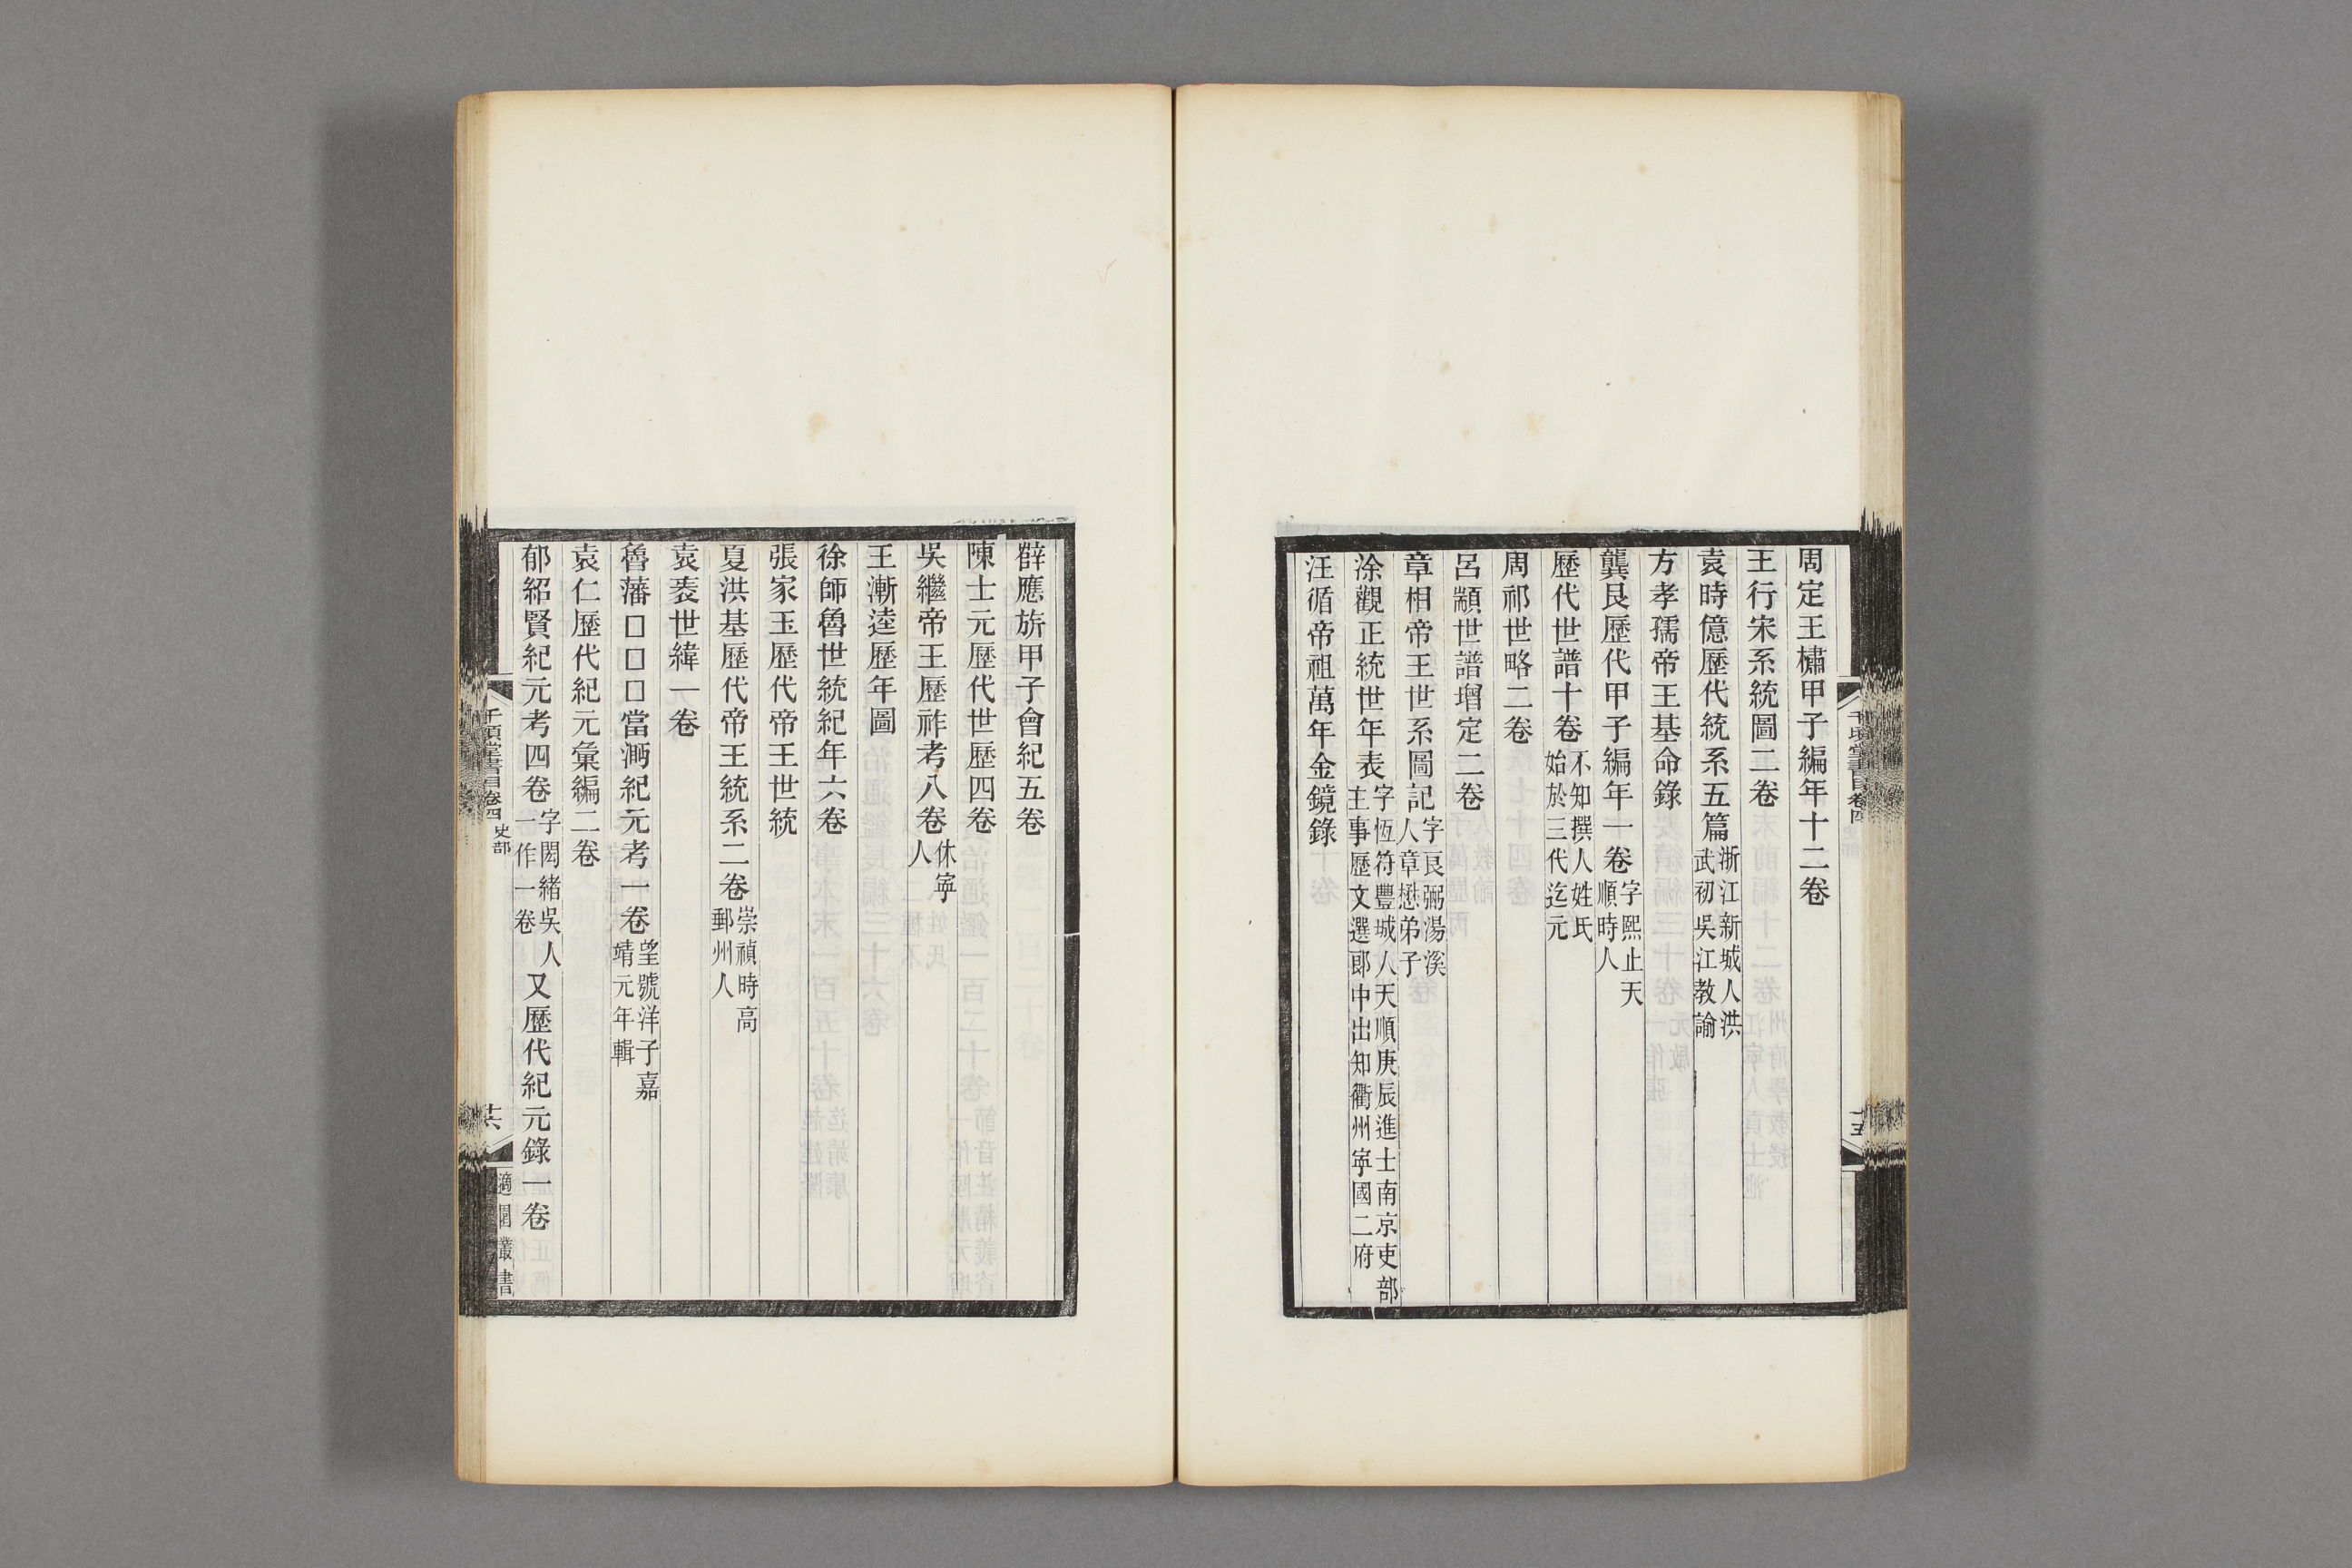 周定王橚甲子編年十二卷
王行宋系統圖二卷
袁時億歷代統系五篇浙江新城人洪武初吳江教諭
方孝孺帝王基命錄
龔艮歷代甲子編年一卷字熙止天順時人
歷代世譜十卷不知撰人姓氏始於三代迄元
周祁世略二卷
呂顓世譜增定二卷
章相帝王世系圖記字艮弼湯溪人章懋弟子
涂觀正統世年表字恆符豐城人天順庚辰進士南京吏部主事歷文選郎中出知衢州寧國二府
汪循帝祖萬年金鏡錄
千頃堂書目卷四
十五
薜應旂甲子會紀五卷
陳士元歷代世歷四卷
吳繼帝王歷祚考八卷休寧人
王漸逵歷年圖
徐師魯世統紀年六卷
張家玉歷代帝王世統
夏洪基歷代帝王統系二卷崇禎時高郵州人
袁袠世緯一卷
魯藩□□□當㴐紀元考一卷望號洋子嘉靖元年輯
袁仁歷代紀元彙編二卷
郁紹賢紀元考四卷字閎緒吳人一作一卷又歷代紀元錄一卷
千頃堂書目卷四 史部
十六
適園叢書